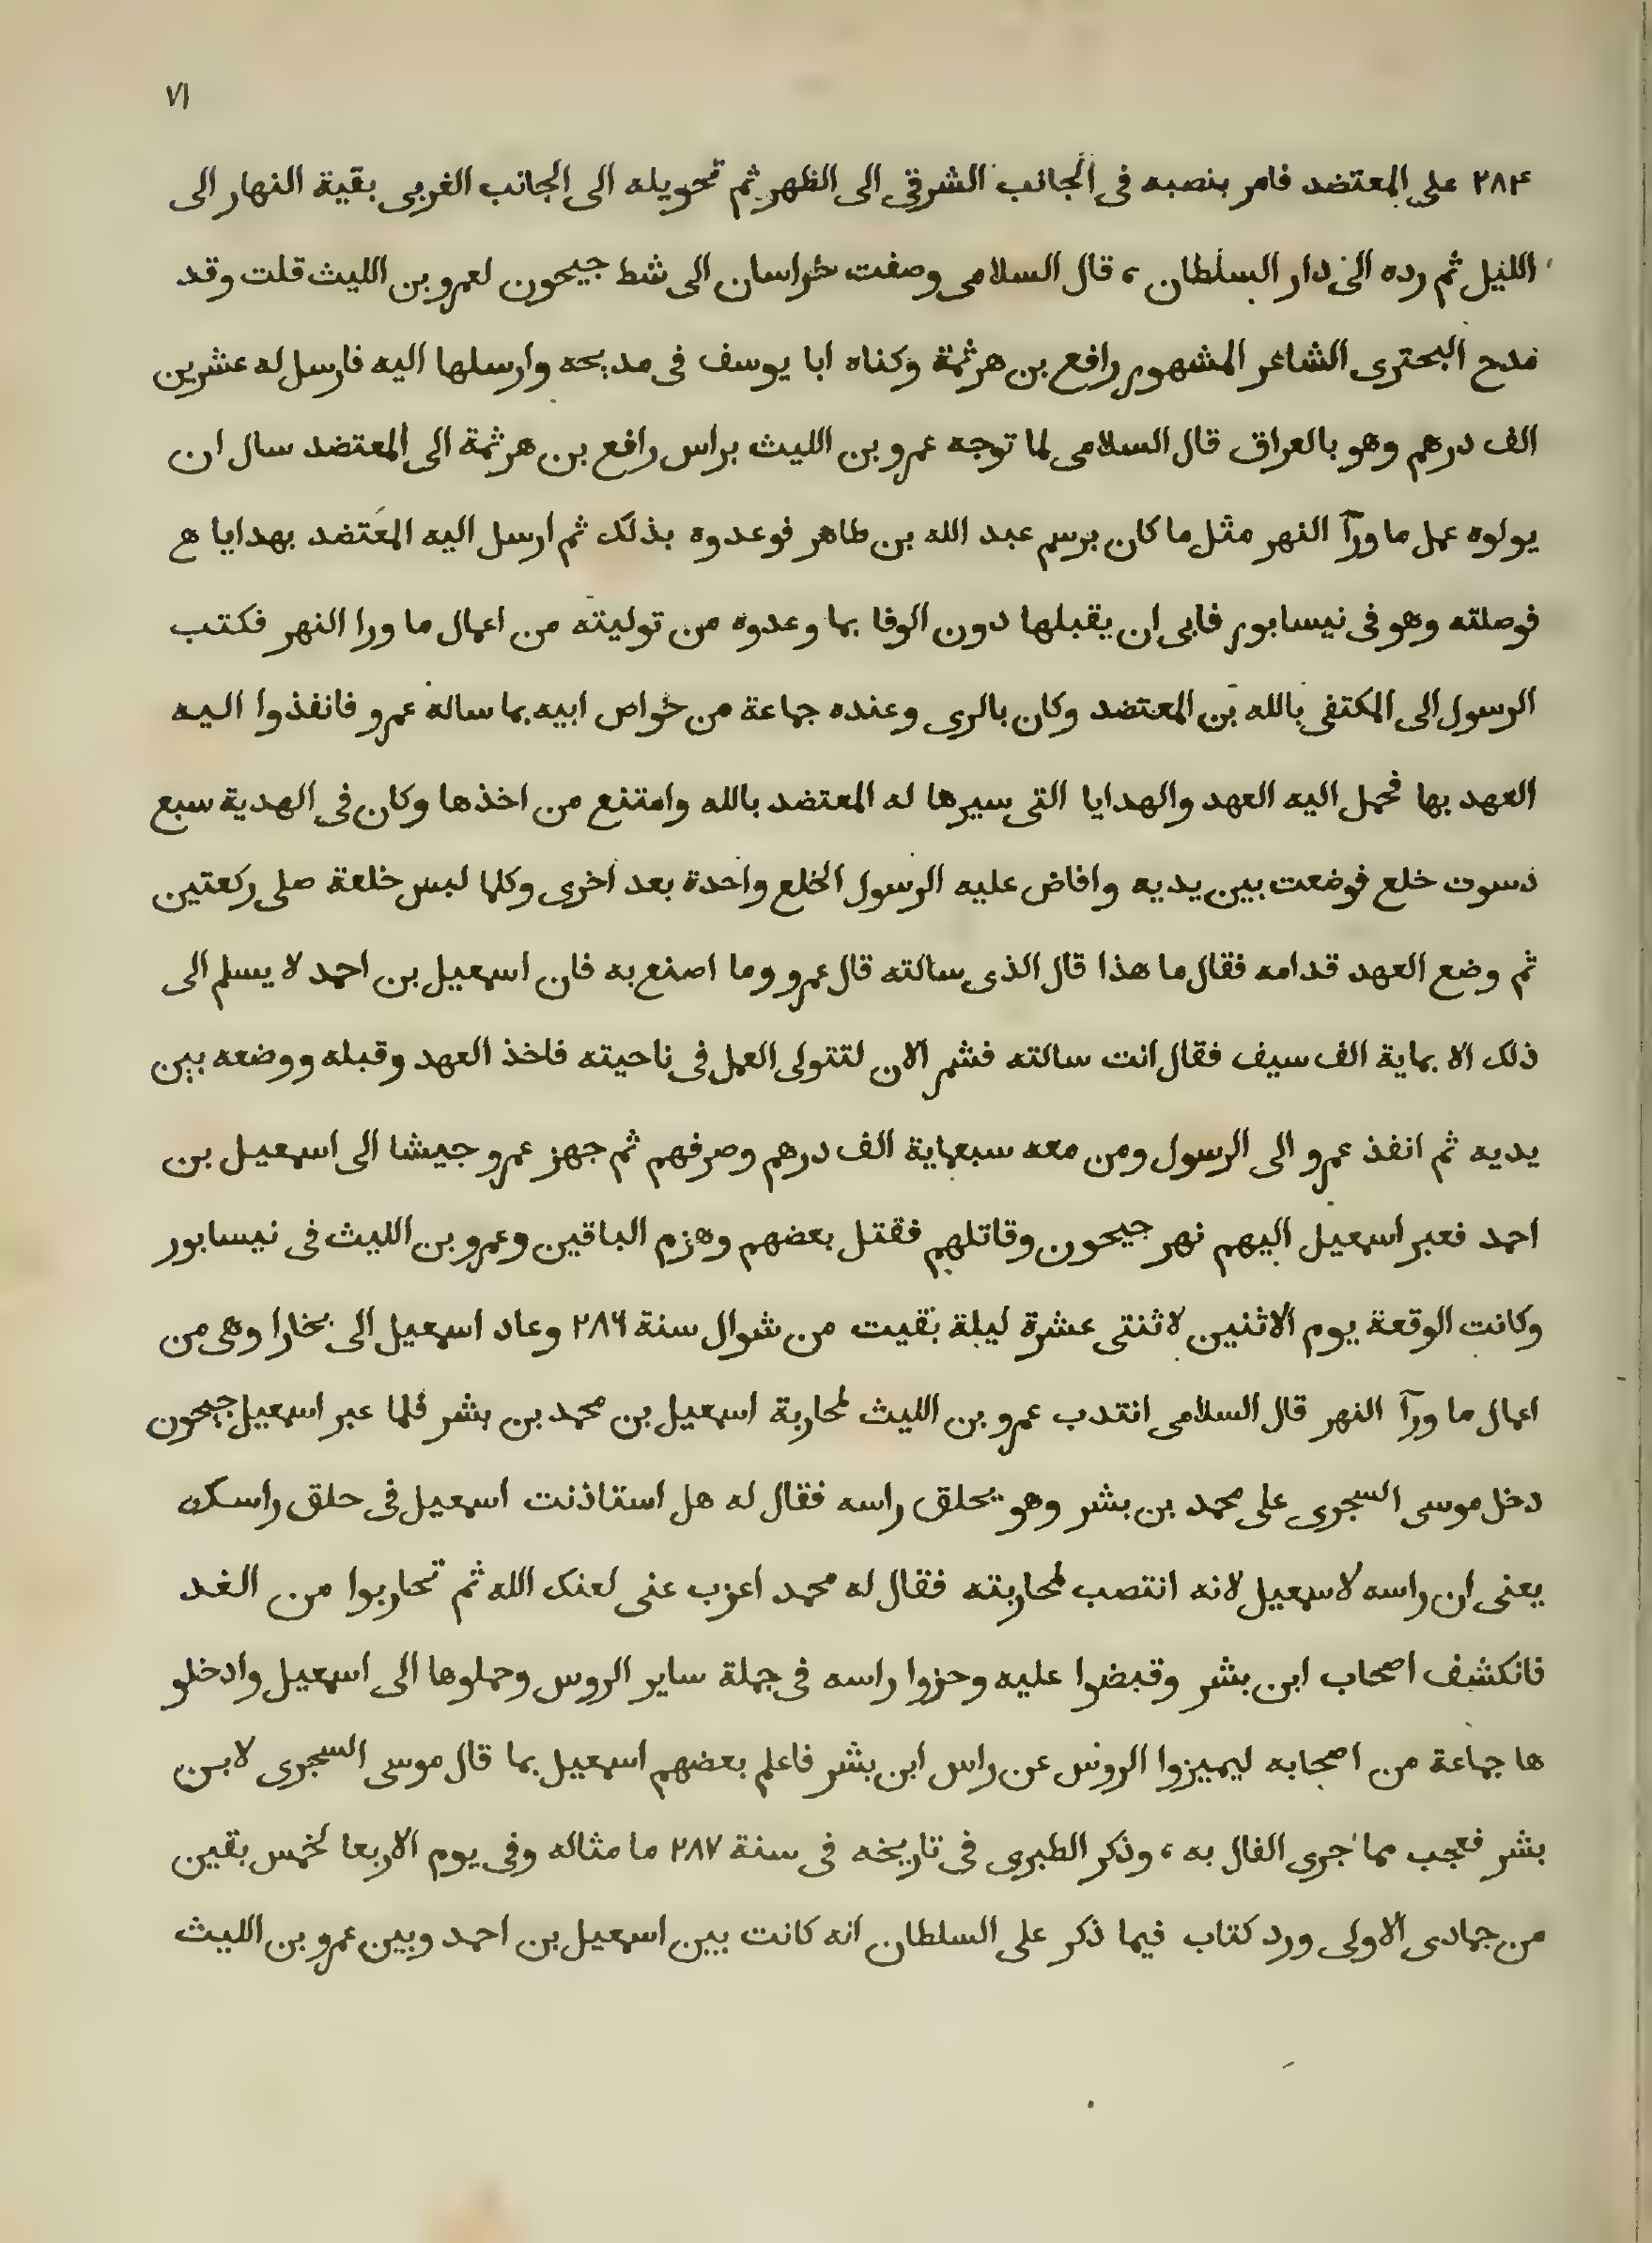 ٧١
٢٨٤ على المعتضد فامر بنصبه فى الجانب الشرقى الى الظهر ثم تحويله الى الجانب الغربى بقية النهار الى
الليل ثم رده الى دار السلطان ، قال السلامى وصفت خراسان الى شط جيحون لعمرو بن الليث قلت وقد
مدح البحترى الشاعر المشهور رافع بن هرثمة وكناه ابا يوسف فى مديحه وارسلها اليه فارسل له عشرين
الف درهم وهو بالعراق قال السلامى لما توجه عمرو بن الليث براس رافع بن هرثمة الى المعتضد سال ان
يولوه عمل ما ورآ النهر مثل ما كان برسم عبد الله بن طاهر فوعدوه بذلك ثم ارسل اليه المعتضد بهدايا
فوصلته وهو فى نيسابور فابى ان يقبلها دون الوفا بما وعدوه من توليته من اعمال ما ورا النهر فكتب
الرسول الى المكتفى بالله بن المعتضد وكان بالرى وعنده جماعة من خواص ابيه بما ساله عمرو فانفذوا اليه
العهد بها فحمل اليه العهد والهدايا التى سيرها له المعتضد بالله وامتنع من اخذها وكان فى الهدية سبع
دسوت خلع فوضعت بين يديه وافاض عليه الرسول الخلع واحدة بعد اخرى وكلما لبس خلعة صلى ركعتين
ثم وضع العهد قدامه فقال ما هذا قال الذى سالته قال عمرو وما اصنع به فان اسمعيل بن احمد لا يسلم الى
ذلك الا بماية الف سيف فقال انت سالته فشمر الان لتتولى العمل فى ناحيته فاخذ العهد وقبله ووضعه بين
يديه ثم انفذ عمرو الى الرسول ومن معه سبعماية الف درهم وصرفهم ثم جهز عمرو جيشا الى اسمعيل بن
احمد فعبر اسمعيل اليهم نهر جيحون وقاتلهم فقتل بعضهم وهزم الباقين وعمرو بن الليث فى نيسابور
وكانت الوقعة يوم الاثنين لاثنتى عشرة ليلة بقيت من شوال سنة ٢٨٦ وعاد اسمعيل الى بخارا وهى من
اعمال ما ورآ النهر قال السلامى انتدب عمرو بن الليث لمحاربة اسمعيل بن محمد بن بشر فلما عبر اسمعيل جيحون
دخل موسى السجرى على محمد بن بشر وهو يحلق راسه فقال له هل استاذنت اسمعيل فى حلق راسك
يعنى ان راسه لاسمعيل لانه انتصب لمحاربته فقال له محمد اعزب عنى لعنك الله ثم تحاربوا من الغد
فانكشف اصحاب ابن بشر وقبضوا عليه وحزوا راسه فى جملة ساير الروس وحملوها الى اسمعيل وادخلو
ها جماعة من اصحابه ليميزوا الروس عن راس ابن بشر فاعلم بعضهم اسمعيل بما قال موسى السجرى لابن
بشر فعجب مما جرى الفال به ، وذكر الطبرى فى تاريخه فى سنة ٢٨٧ ما مثاله وفى يوم الاربعا لخمس بقين
من جمادى الاولى ورد كتاب فيما ذكر على السلطان انه كانت بين اسمعيل بن احمد وبين عمرو بن الليث